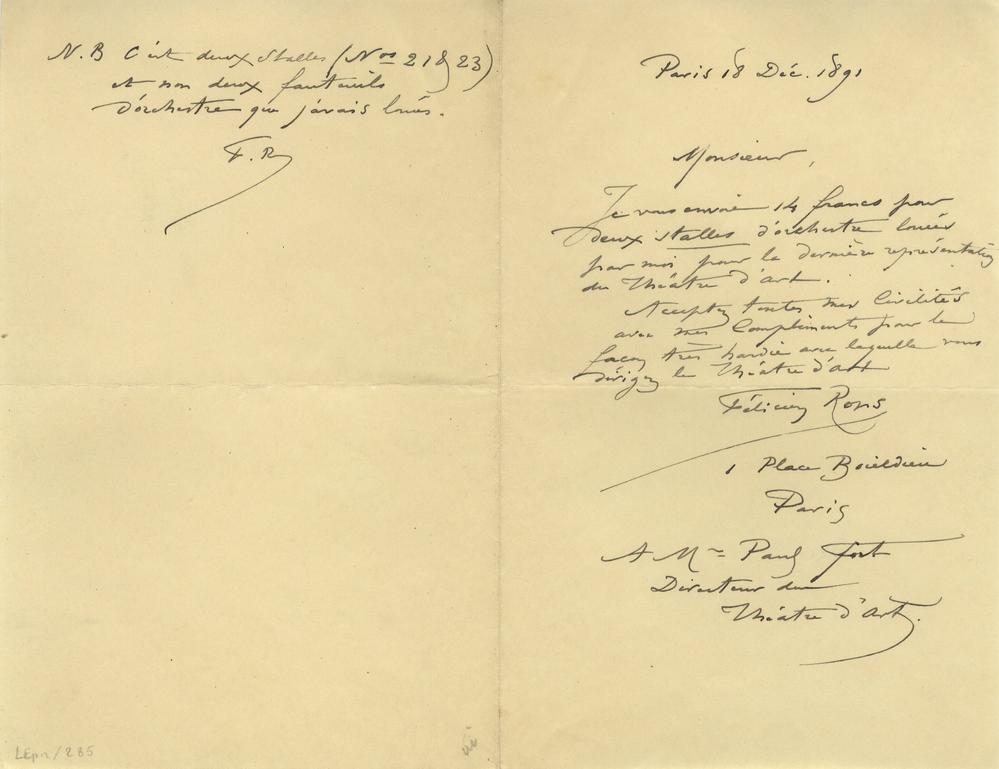 Paris 18 Déc. 1891
Monsieur,
Je vous envoie 14 francs pour
deux stalles d'orchestre louées
par moi pour la dernière représentation
du Théâtre d'art.
Acceptez toutes mes Civilités
avec mes Compliments pour la
façon très hardie avec laquelle vous
dirigez le Théâtre d'art
Félicien Rops
1 Place Boieldieu
Paris
A Mr Paul Fort
Directeur du
Théâtre d'Art.
N.B C'est deux stalles (Nos 21 & 23)
et non deux fauteuils
d'orchestre que j'avais loués.
F. R
LEpr/285